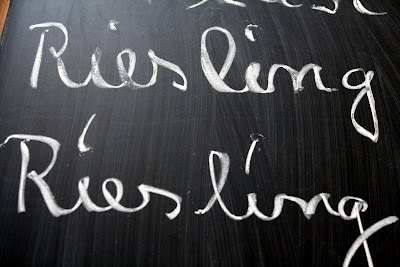 Riesling
Riesling